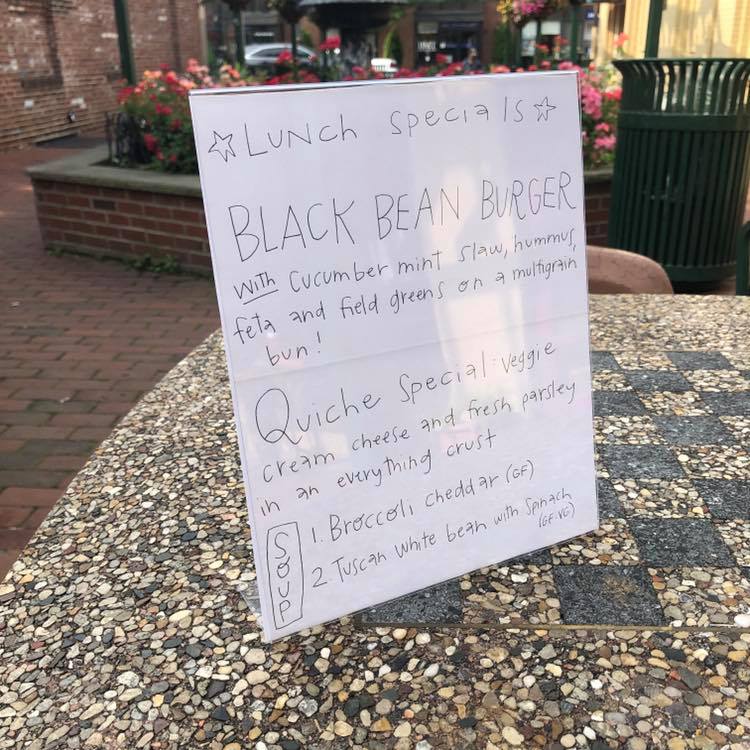 ☆ Lunch specials ☆
BLACK BEAN BURGER
with cucumber mint slaw, hummus,
feta and field greens on a multigrain
bun!
Quiche Special: veggie
cream cheese and fresh parsley
in an everything crust
SOUP
1. Broccoli cheddar (GF)
2 Tuscan white bean with spinach
(GF·VG)